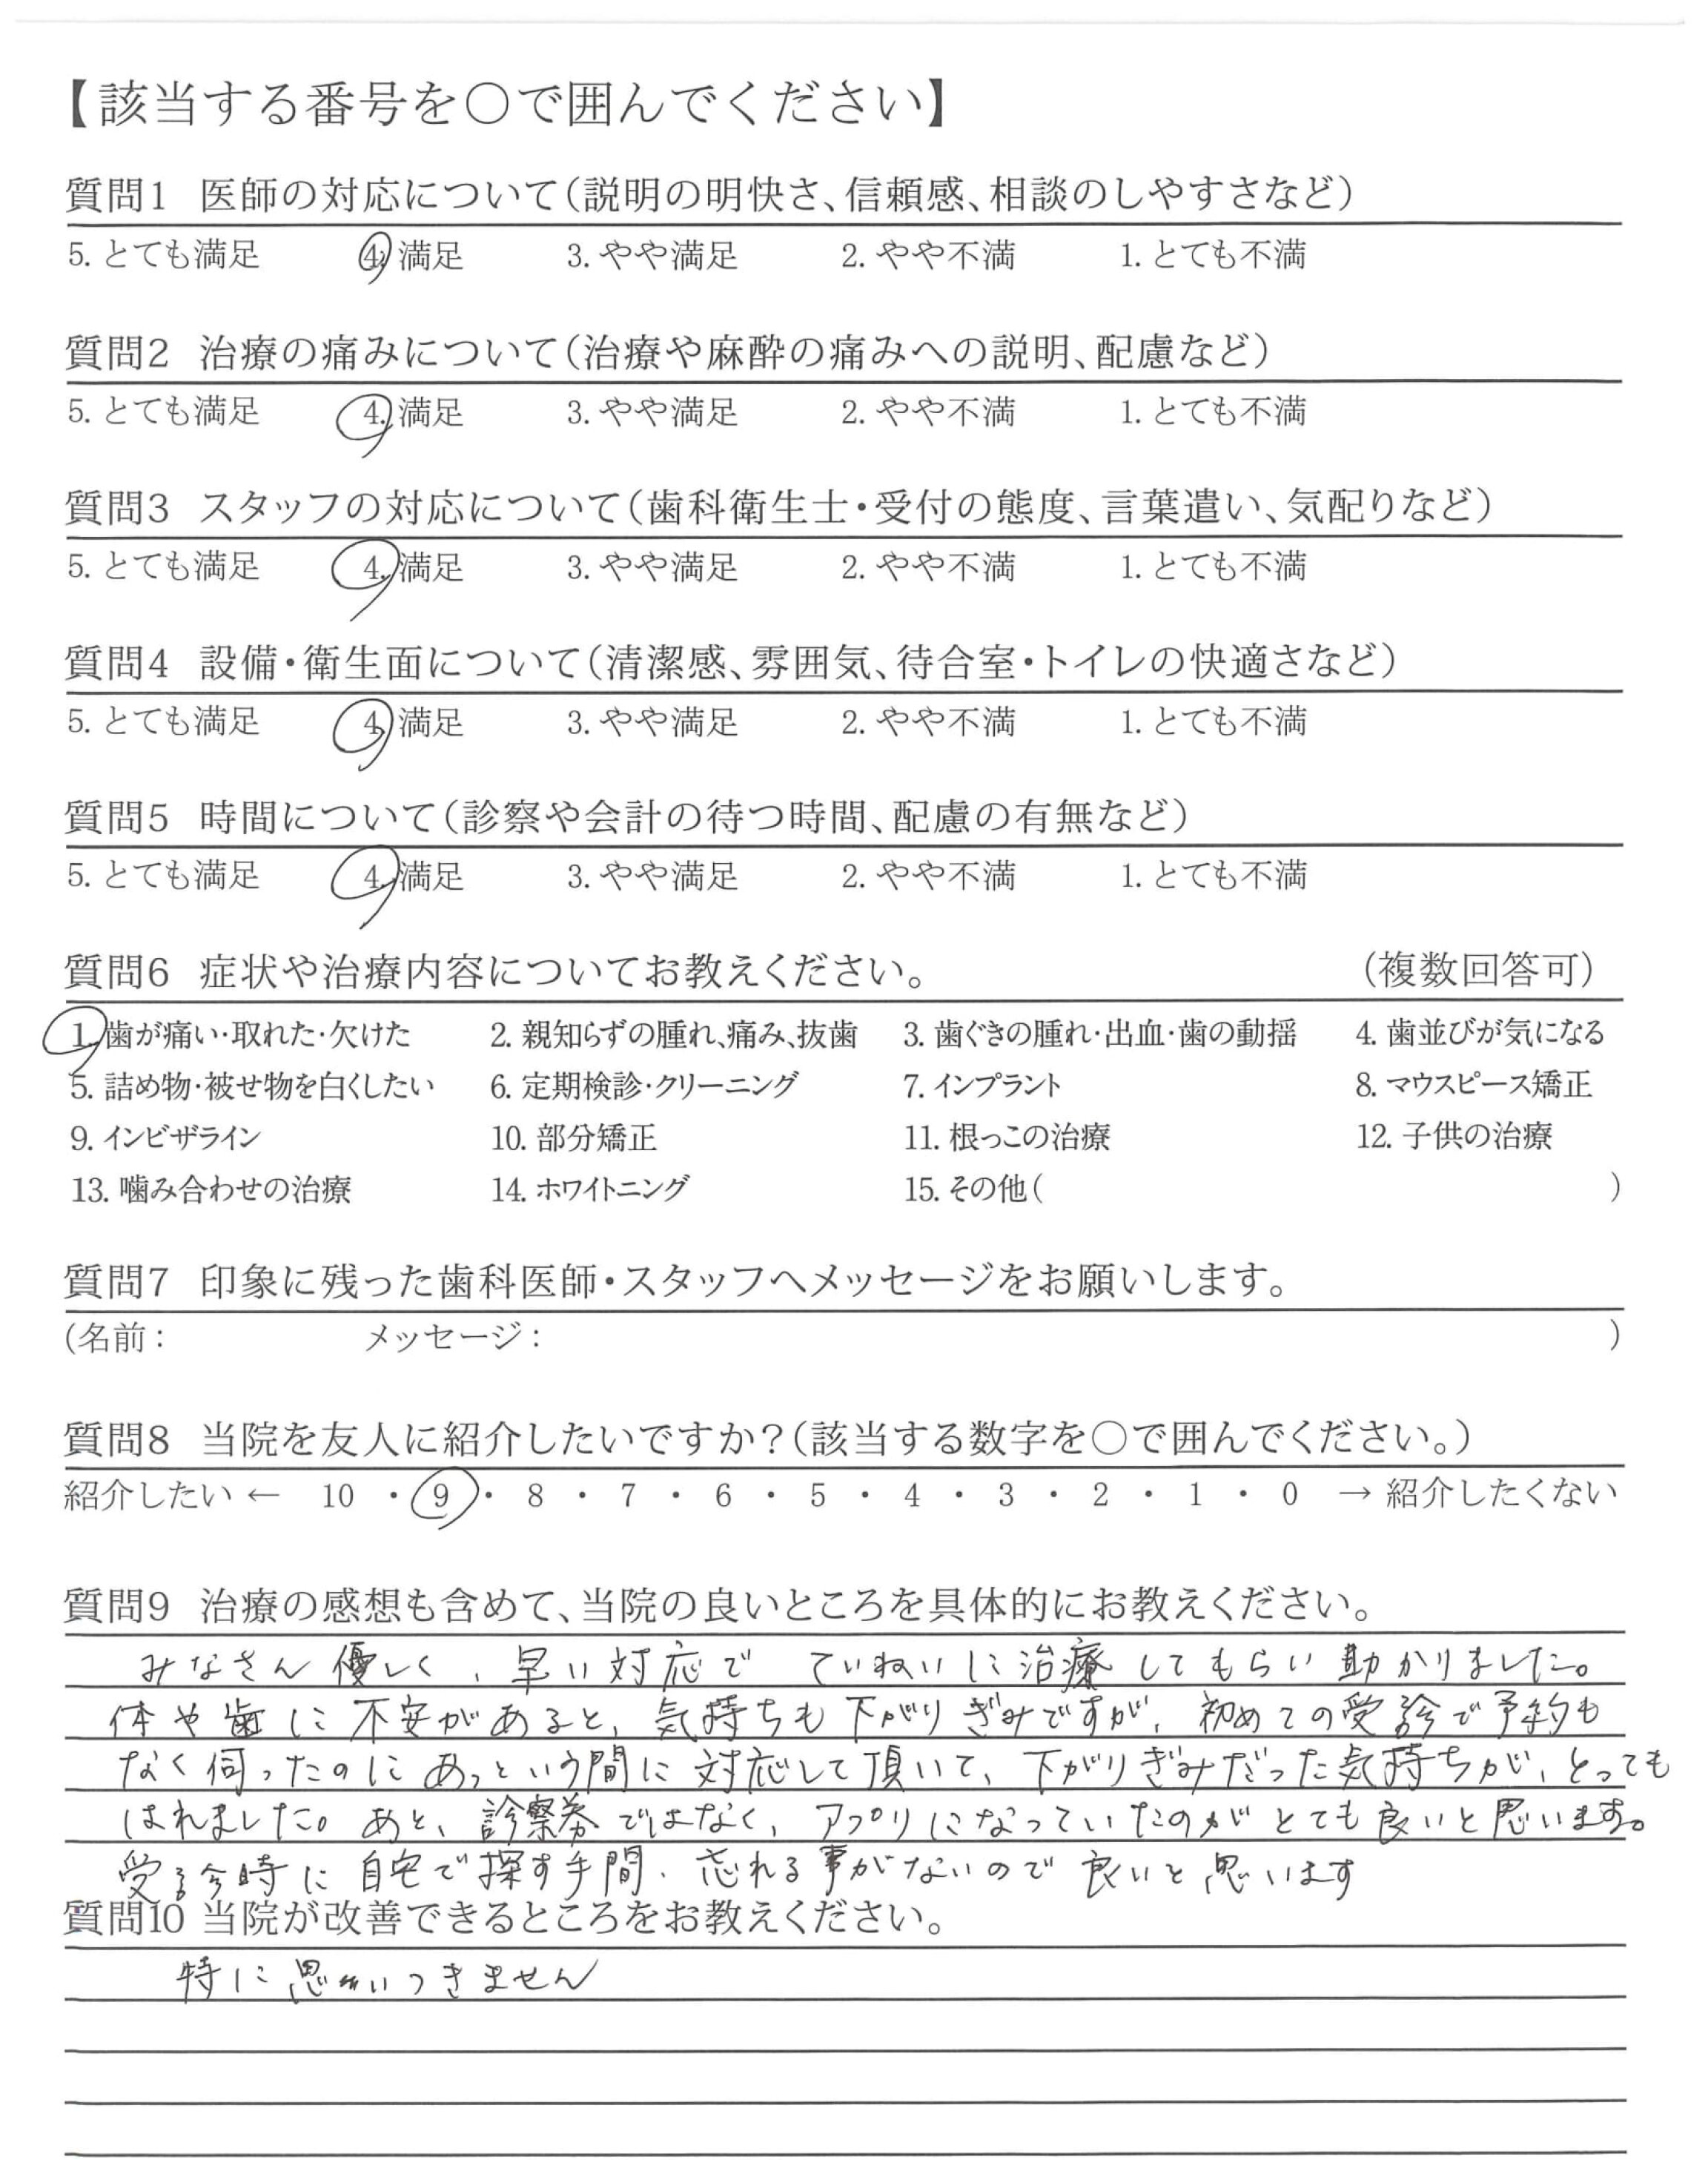 【該当する番号を○で囲んでください】
質問1 医師の対応について(説明の明快さ、信頼感、相談のしやすさなど)
5. とても満足 4. 満足 3. やや満足 2. やや不満 1. とても不満
質問2 治療の痛みについて(治療や麻酔の痛みへの説明、配慮など)
5. とても満足 4. 満足 3. やや満足 2. やや不満 1. とても不満
質問3 スタッフの対応について(歯科衛生士・受付の態度、言葉遣い、気配りなど)
5. とても満足 4. 満足 3. やや満足 2. やや不満 1. とても不満
質問4 設備・衛生面について(清潔感、雰囲気、待合室・トイレの快適さなど)
5. とても満足 4. 満足 3. やや満足 2. やや不満 1. とても不満
質問5 時間について(診察や会計の待つ時間、配慮の有無など)
5. とても満足 4. 満足 3. やや満足 2. やや不満 1. とても不満
質問6 症状や治療内容についてお教えください。 (複数回答可)
1. 歯が痛い・取れた・欠けた 2. 親知らずの腫れ、痛み、抜歯 3. 歯ぐきの腫れ・出血・歯の動揺 4. 歯並びが気になる
5. 詰め物・被せ物を白くしたい 6. 定期検診・クリーニング 7. インプラント 8. マウスピース矯正
9. インビザライン 10. 部分矯正 11. 根っこの治療 12. 子供の治療
13. 噛み合わせの治療 14. ホワイトニング 15. その他( )
質問7 印象に残った歯科医師・スタッフへメッセージをお願いします。
(名前: メッセージ: )
質問8 当院を友人に紹介したいですか?(該当する数字を○で囲んでください。)
紹介したい ← 10 ・ 9 ・ 8 ・ 7 ・ 6 ・ 5 ・ 4 ・ 3 ・ 2 ・ 1 ・ 0 → 紹介したくない
質問9 治療の感想も含めて、当院の良いところを具体的にお教えください。
みなさん優しく、早い対応で ていねいに治療してもらい助かりました。
体や歯に不安があると、気持ちも下がりぎみですが、初めての受診で予約も
なく伺ったのにあっという間に対応して頂いて、下がりぎみだった気持ちが、とっても
はれました。あと、診察券ではなく、アプリになっていたのがとても良いと思います。
受診時に自宅で探す手間、忘れる事がないので良いと思います
質問10 当院が改善できるところをお教えください。
特に思いつきません